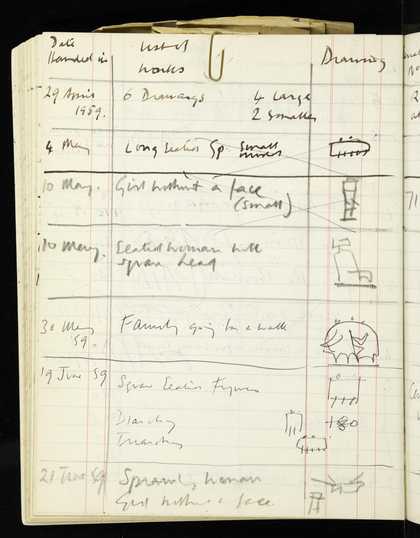 Date Handed in
List of works
Drawing
29 April 1959.
6 Drawings
4 Large
2 Smaller
4 May
Long Seated Sp. Small
10 May.
Girl without a face
(small)
10 May.
Seated woman with
square head
30 May 59.
Family going for a walk
19 June 59
Square Seated Figures
21 June 59
Sprawling woman
Girl without a face